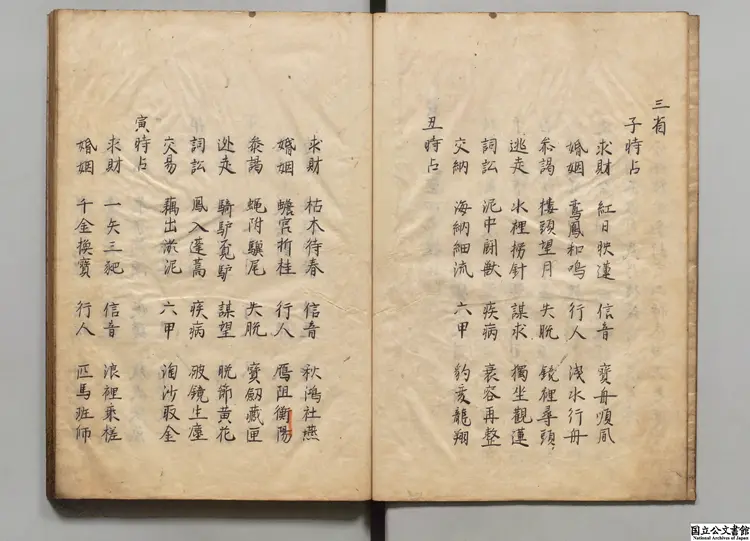 三省
子時占
求財 紅日映蓮 信音 寶舟順風
婚姻 鸞鳳和鳴 行人 淺水行舟
忝謁 樓頭望月 失脱 鏡裡尋頭
逃走 水裡撈針 謀求 獨坐觀蓮
詞訟 泥中鬪獸 疾病 衰容再整
交納 海納細流 六甲 豹变龍翔
丑時占
求財 枯木待春 信音 秋鴻社燕
婚姻 蟾宮折桂 行人 鴈阻衡陽
忝謁 蝇附驥尾 失脱 寶劔藏匣
逃走 騎馿覔馿 謀望 脱節黄花
詞訟 鳳入蓬蒿 疾病 破镜生塵
交易 藕出淤泥 六甲 淘沙取金
寅時占
求財 一矢三豝 信音 浪裡乘槎
婚姻 千金換寶 行人 匹馬班師
国立公文書館
National Archives of Japan